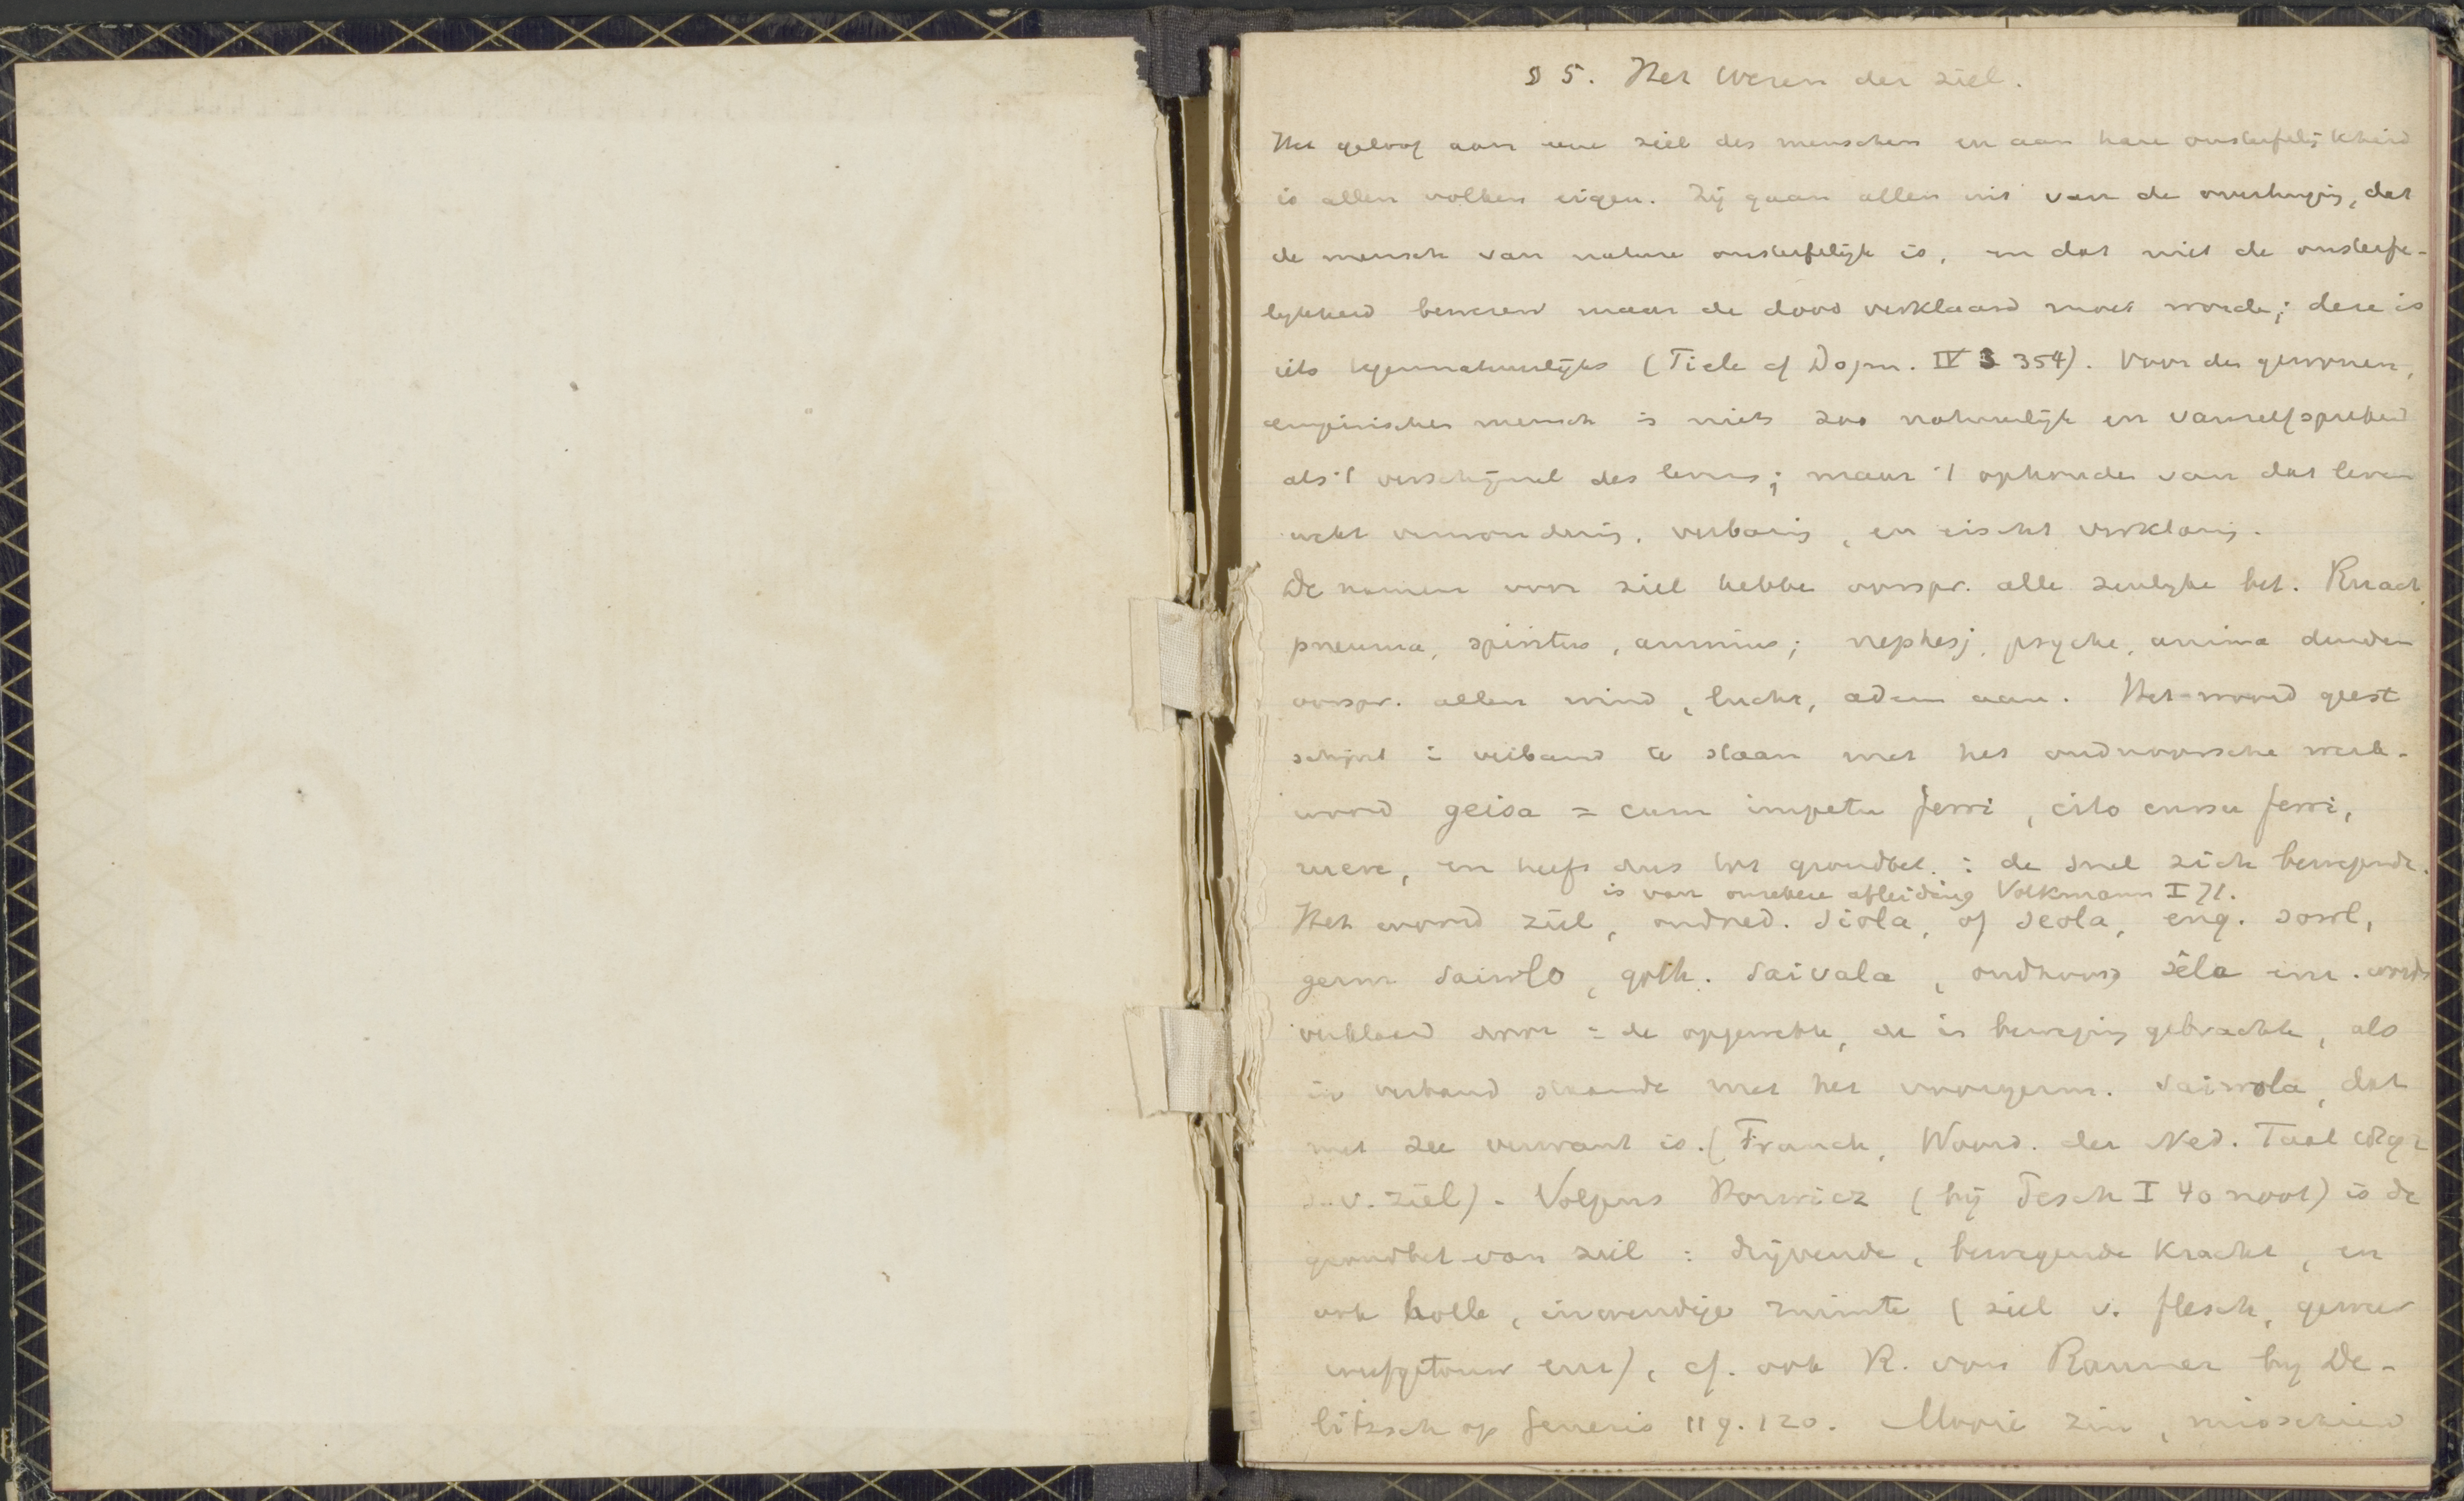 § 5. Het wezen der ziel.
Het geloof aan eene ziel des menschen en aan hare onsterfelijkheid
is allen volken eigen. Zij gaan allen uit van de overtuigg, dat
de mensch van nature onsterfelijk is, en dat niet de onsterfe-
lijkheid bewezen maar de dood verklaard moet worde; deze is
iets tegennatuurlijks (Tiele cf Dogm. IV 3 354). Voor den gewonen,
empirischen mensch is niets zoo natuurlijk en vanzelfsprekend
als 't verschijnsel des levens; maar 't ophouden van dat leven
wekt verwondering, verbazing, en eischt verklaring.
De namen voor ziel hebbe oorspr. alle zinlijke bet. Ruach,
pneuma, spiritus, animus; nephesj, psyche, anima duiden
oorspr. allen wind, lucht, adem aan. Het woord geest
schijnt in verband te staan met het oudnoorsche werk-
woord geisa = cum impetu ferri, cito cursu ferri,
ruere, en heeft dus tot grondbet.: de snel zich bewegende.
is van onzekere afleiding Volkmann I 71.
Het woord ziel, oudned. siola, of seola, eng. soul,
germ saiwlo, goth. saivala, oudnoors sêla enz. wordt
verklaard door = de opgewekte, de in beweging gebrachte, als
in verband staande met het voorgerm. saiwola, dat
met zee verwant is. (Franck, Woord. der Ned. Taal
s.v. ziel). Volgens Kornicz (bij Pesch I 40 noot) is de
grondbet van ziel: drijvende, bewegende kracht, en
ook holle, inwendige ruimte (ziel v. flesch, geweer
weefgetouw enz), cf. ook R. von Raumer bij De-
litzsch op Genesis 119. 120. Mooie zin, misschien